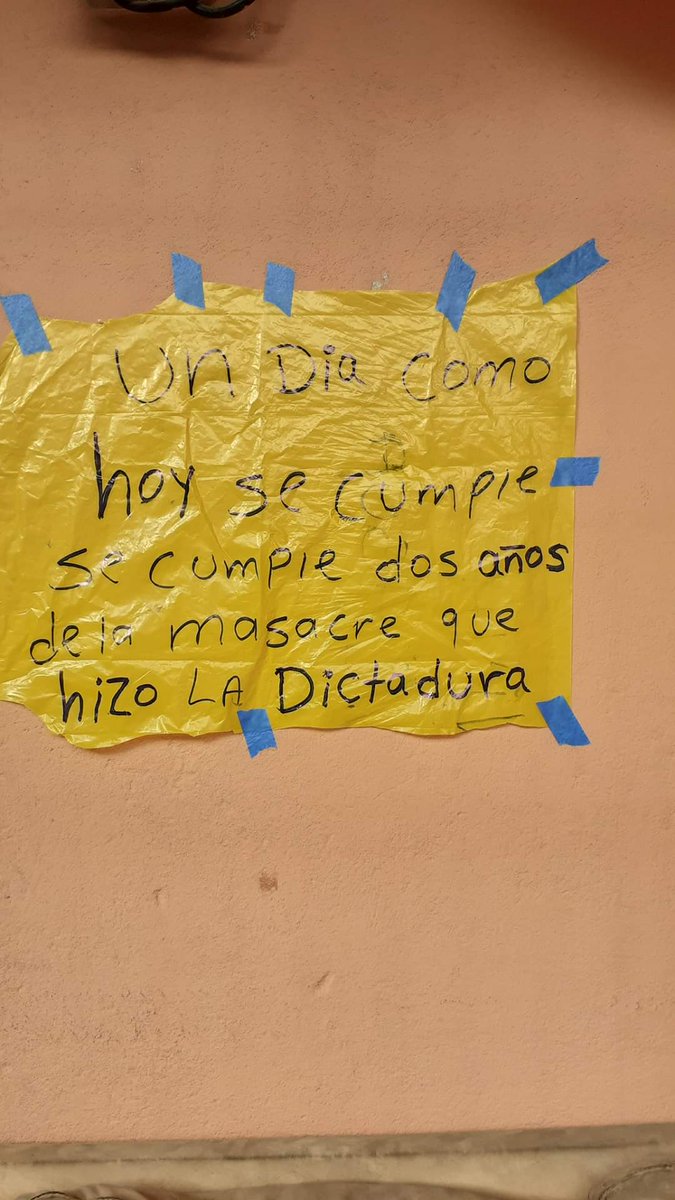 Un Dia como
hoy se cumple
se cumple dos años
de la masacre que
hizo LA Dictadura